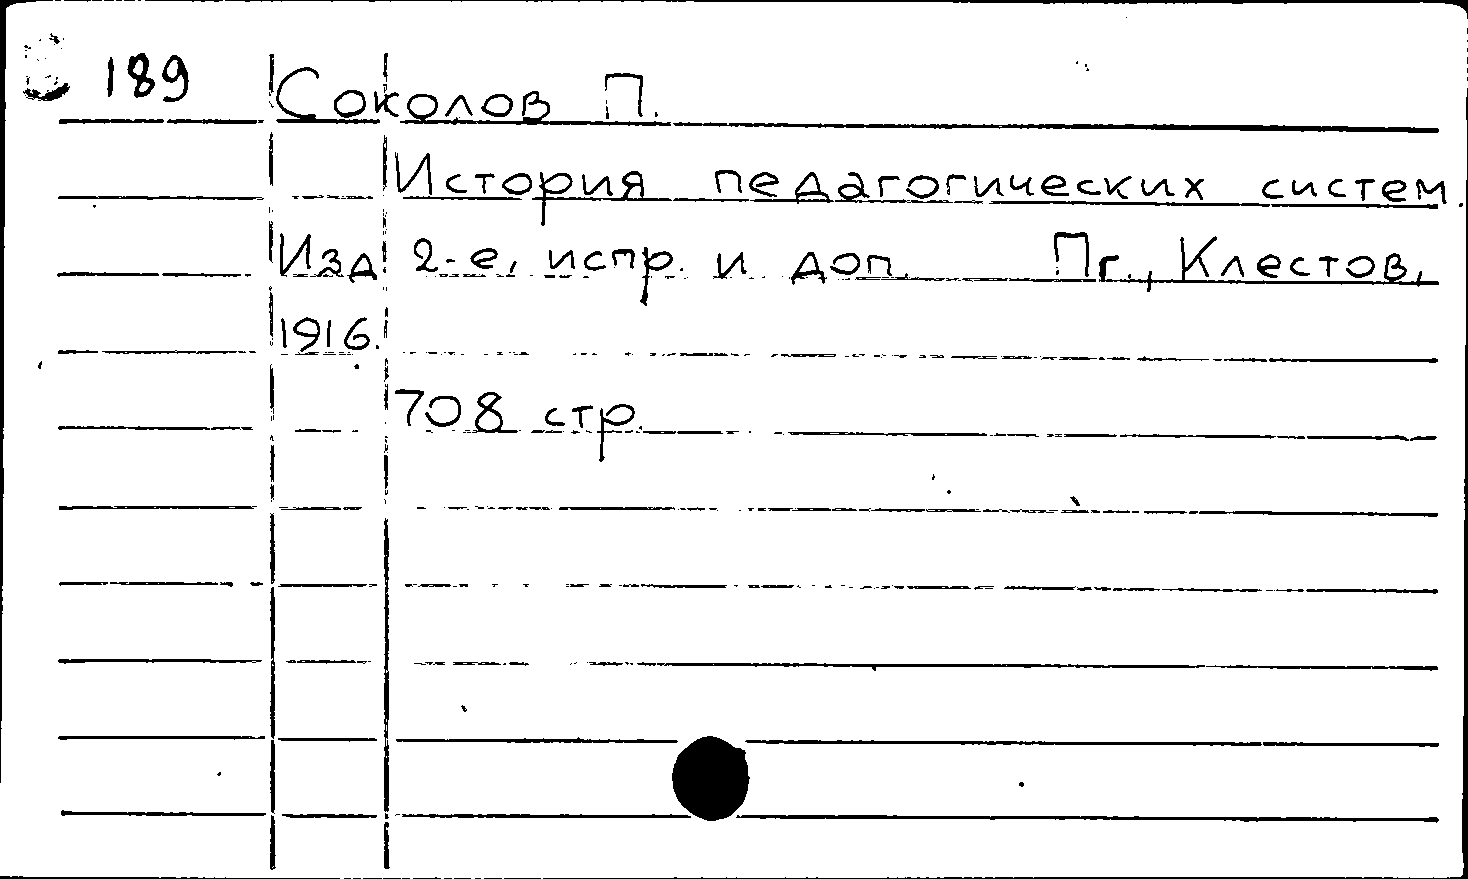 189 Соколов П.
История педагогических систем.
Изд 2-е, испр. и доп. Пг., Клестов,
1916.
708 стр.